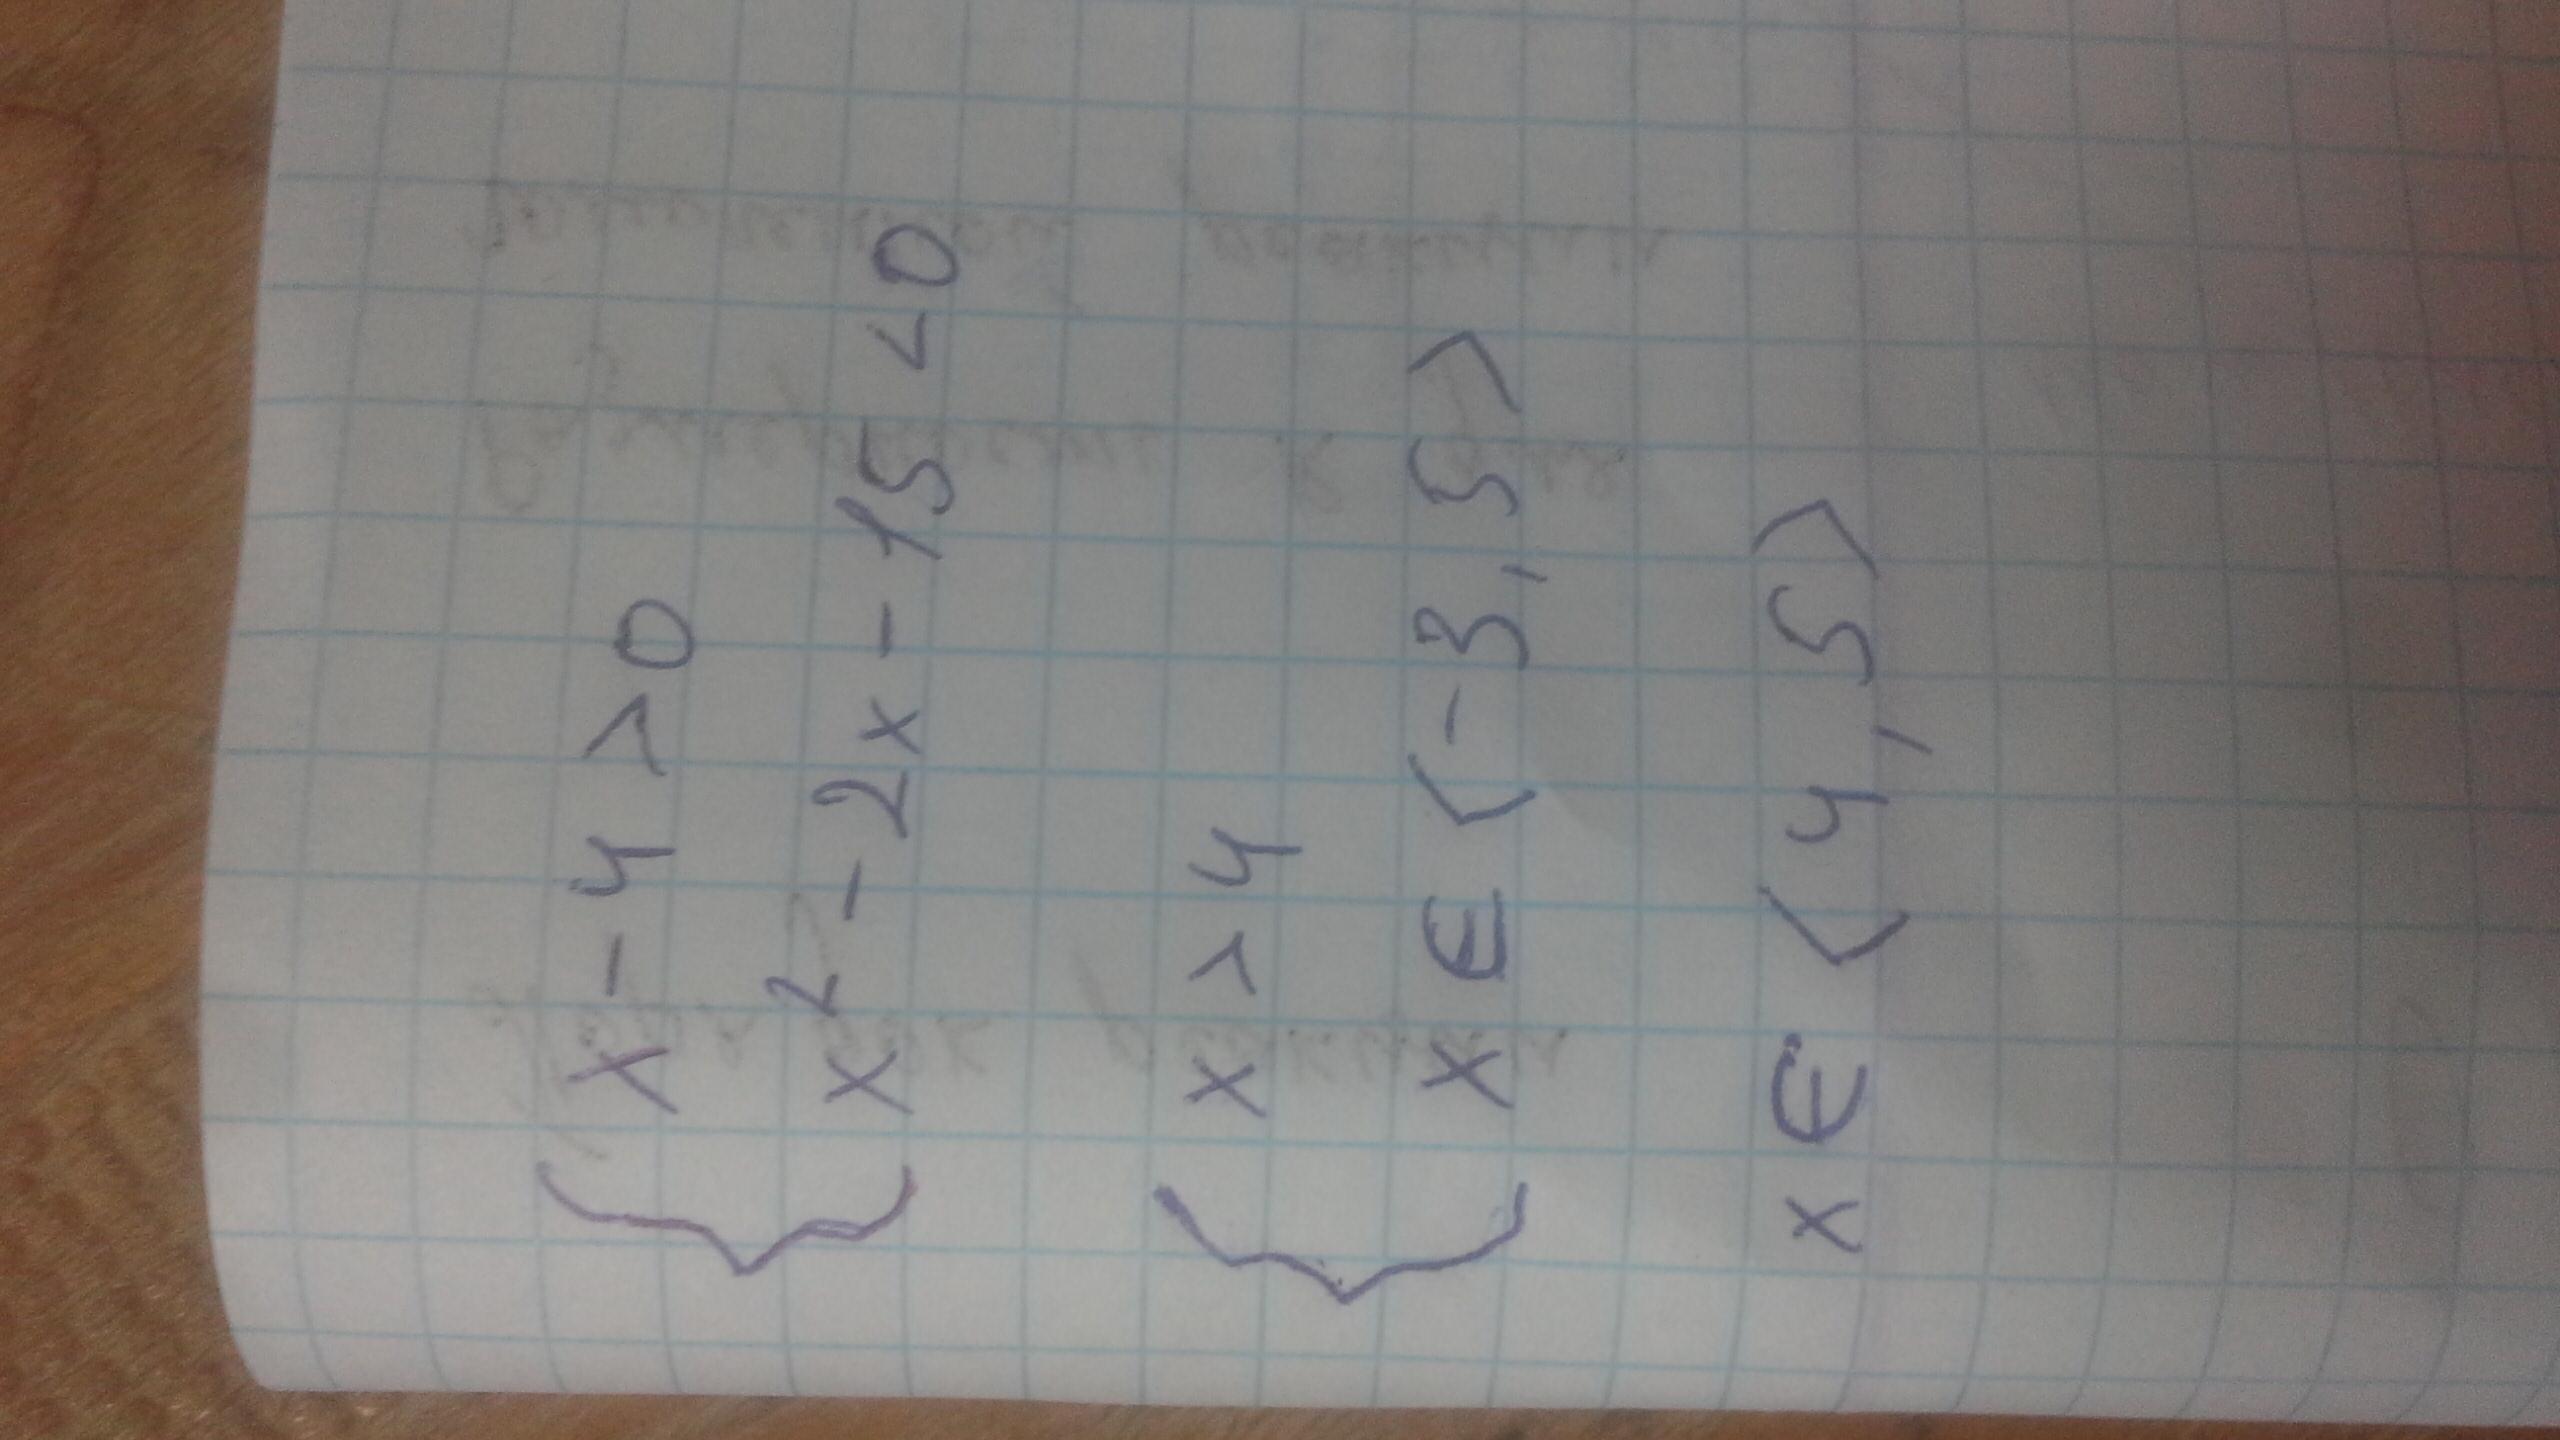 x - 4 > 0
x² - 2x - 15 < 0
x > 4
x ∈ ⟨-3, 5⟩
x ∈ ⟨4, 5⟩